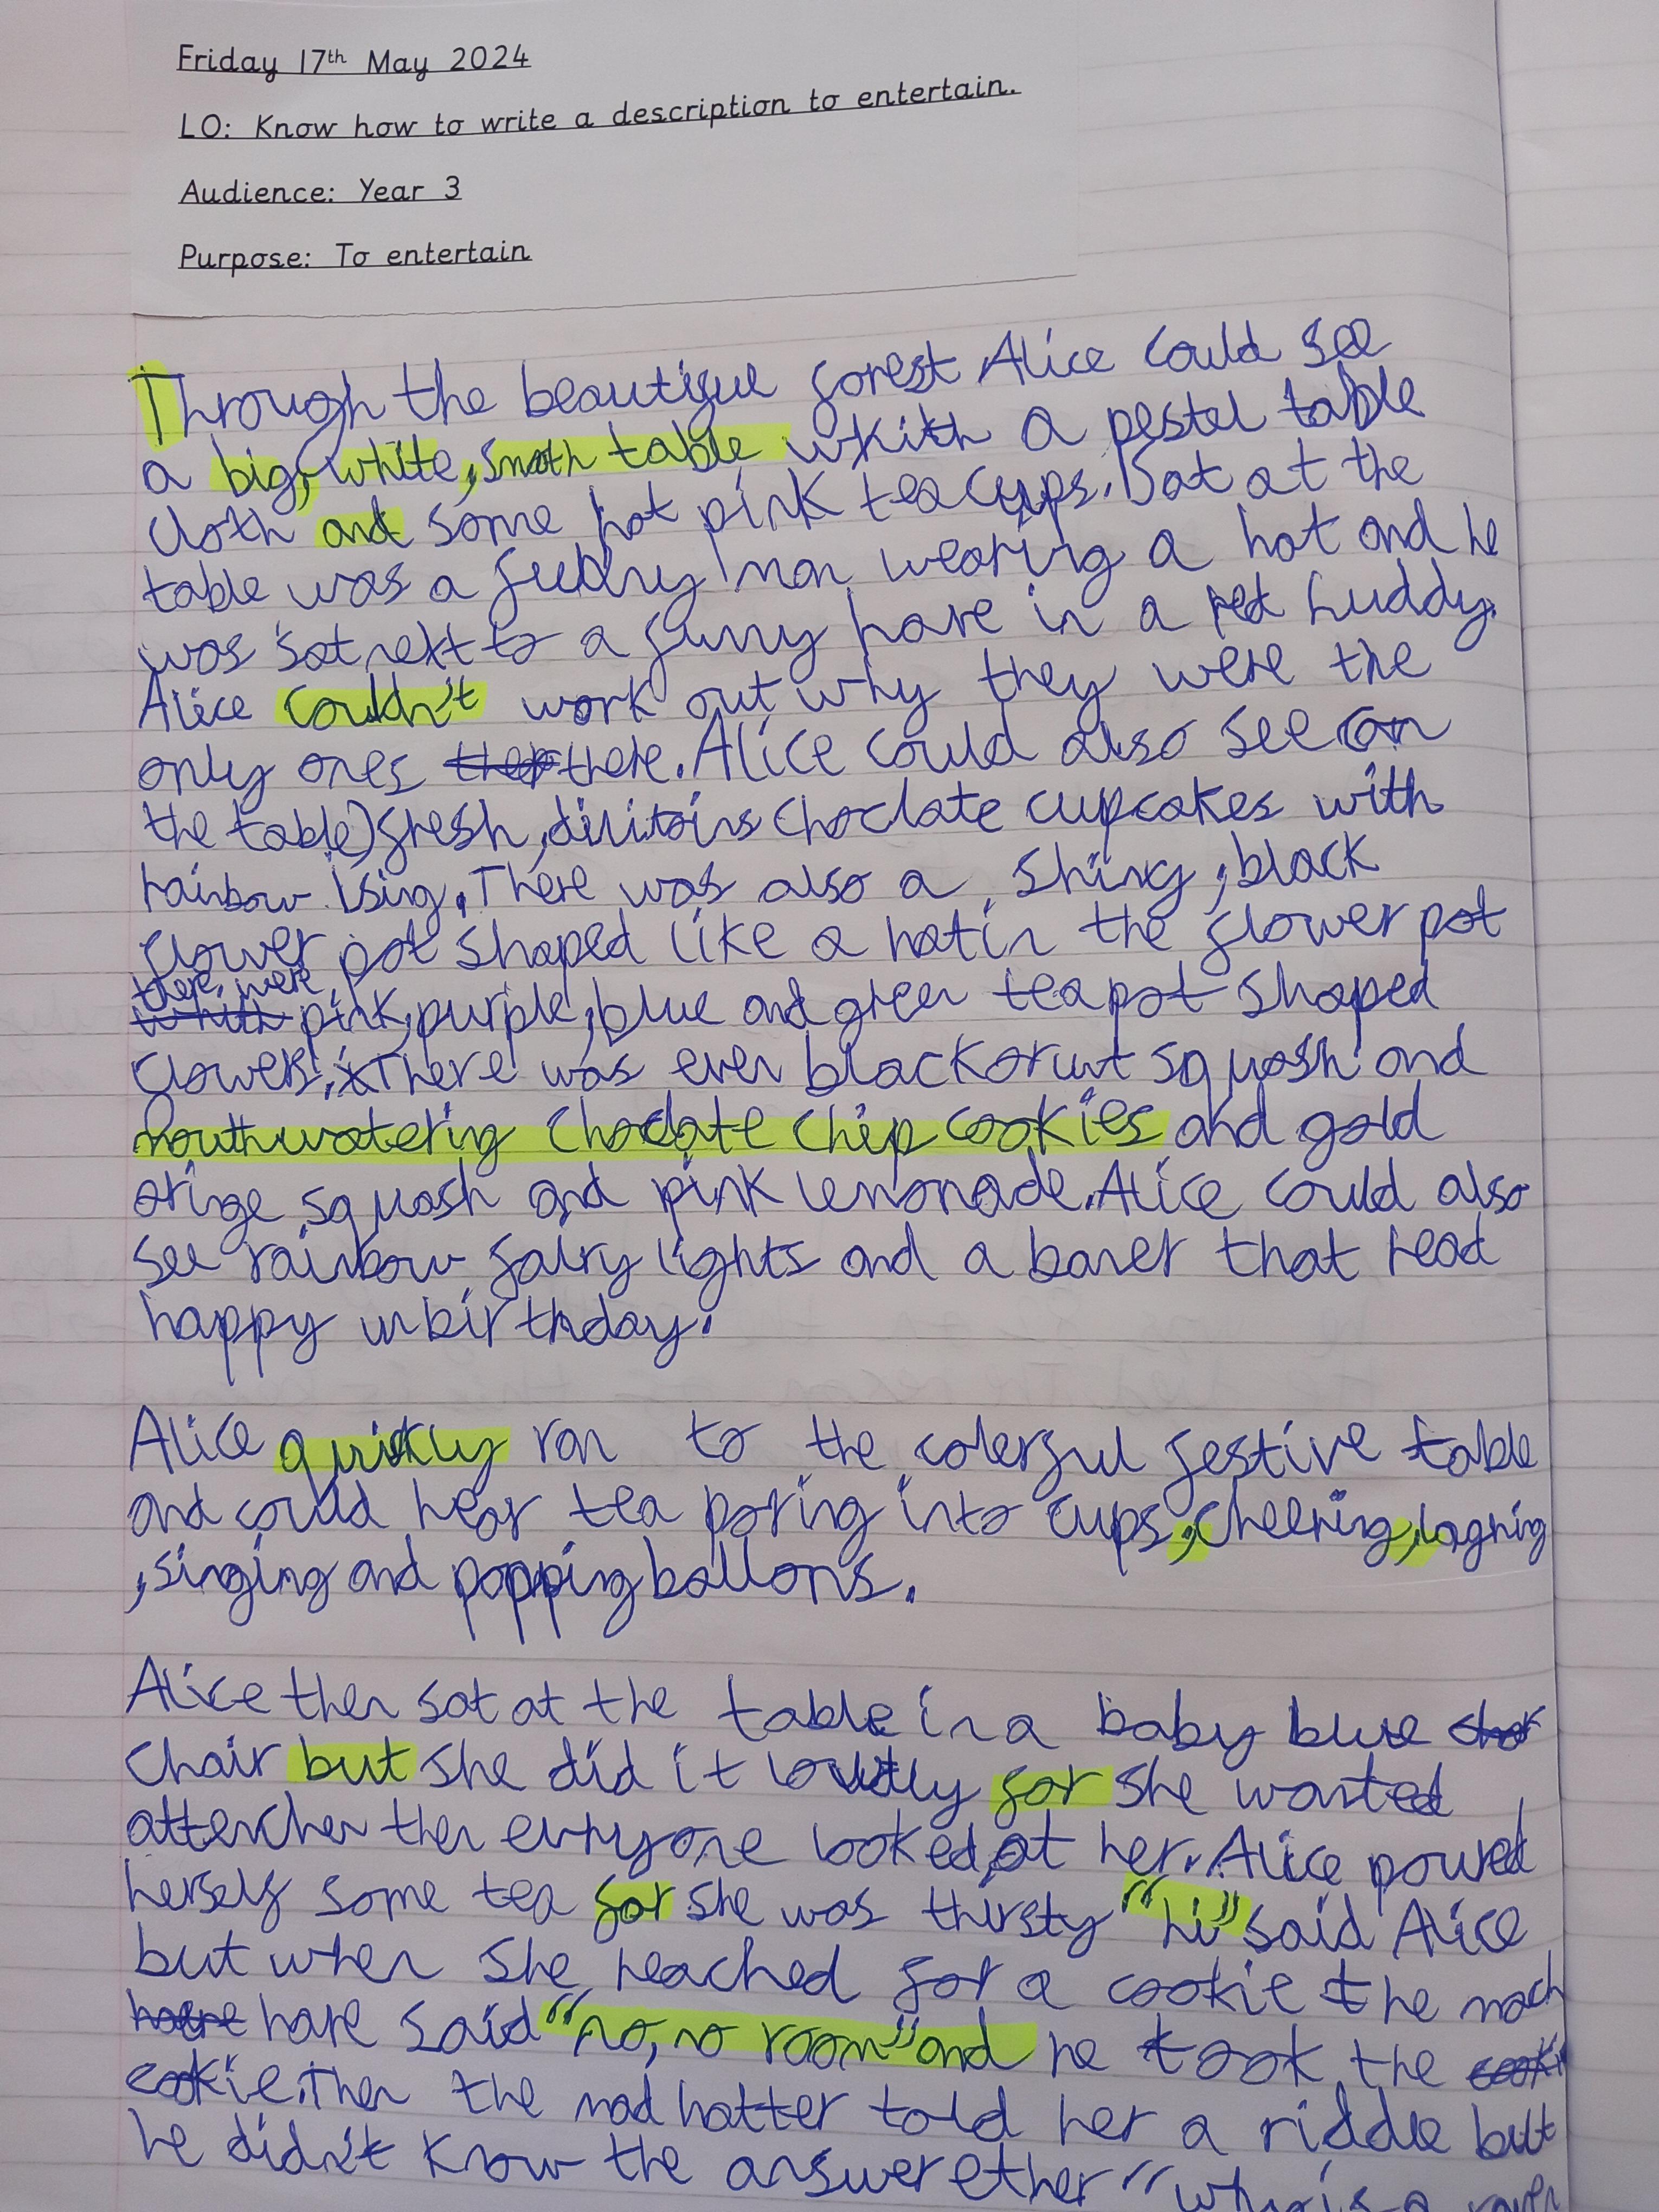 Friday 17th May 2024
LO: Know how to write a description to entertain.
Audience: Year 3
Purpose: To entertain
Through the beautigul forest Alice could see
a big, white, smoth table whith a pestel table
cloth and some hot pink tea cups. Sat at the
table was a funny man wearing a hat and he
was sat next to a funny hare in a red huddy.
Alice couldn't work out why they were the
only ones there. Alice could also see (on
the table) fresh, dilitoins choclate cupcakes with
rainbow ising. There was also a shiny, black
flower pot shaped like a hat in the flower pot
there were pink, purple, blue and green teapot shaped
flowers. There was even blackorunt squash and
mouthwatering choclate chip cookies and gold
oringe squash and pink lemonade. Alice could also
see rainbow fairy lights and a baner that read
happy unbirthday.
Alice quickly ran to the colerful festive table
and could hear tea poring into cups, cheering, lagning
, singing and popping ballons.
Alice then sat at the table in a baby blue
chair but she did it loudly for she wanted
attenchen then evryone looked at her. Alice poured
herself some tea for she was thirsty "hi" said Alice
but when she reached for a cookie the mach
hare said "no, no room" and he took the
cookie. Then the mad hatter told her a riddle but
he didn't know the answer ether "why is a raven